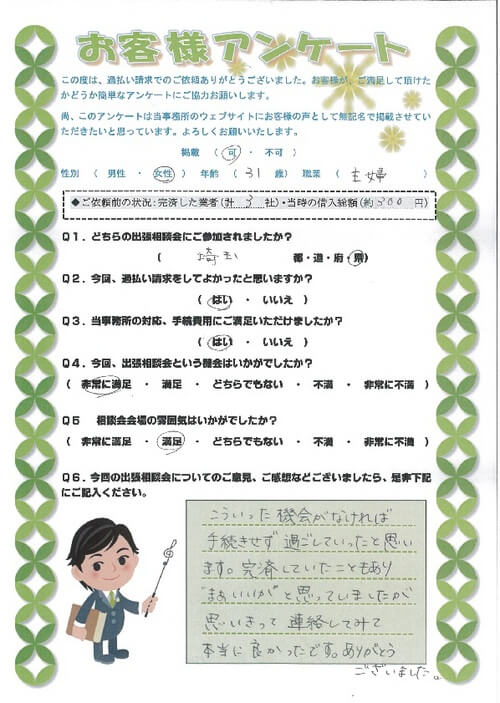 お客様アンケート
この度は、過払い請求でのご依頼ありがとうございました。お客様が、ご満足して頂けた
かどうか簡単なアンケートにご協力お願いします。
尚、このアンケートは当事務所のウェブサイトにお客様の声として無記名で掲載させてい
ただきたいと思っています。よろしくお願いいたします。
掲載 ( 可 ・ 不可 )
性別 ( 男性 ・ 女性 ) 年齢 ( 31 歳) 職業 ( 主婦 )
◆ご依頼前の状況:完済した業者(計 3 社)・当時の借入総額(約 300 円)
Q1.どちらの出張相談会にご参加されましたか?
( 埼玉 都・道・府・県)
Q2.今回、過払い請求をしてよかったと思いますか?
( はい ・ いいえ )
Q3.当事務所の対応、手続費用にご満足いただけましたか?
( はい ・ いいえ )
Q4.今回、出張相談会という機会はいかがでしたか?
( 非常に満足 ・ 満足 ・ どちらでもない ・ 不満 ・ 非常に不満 )
Q5 相談会会場の雰囲気はいかがでしたか?
( 非常に満足 ・ 満足 ・ どちらでもない ・ 不満 ・ 非常に不満 )
Q6.今回の出張相談会についてのご意見、ご感想などございましたら、是非下記
にご記入ください。
こういった機会がなければ
手続きせず過ごしていったと思い
ます。完済していたこともあり
"まぁいいか"と思っていましたが
思いきって連絡してみて
本当に良かったです。ありがとう
ございました。